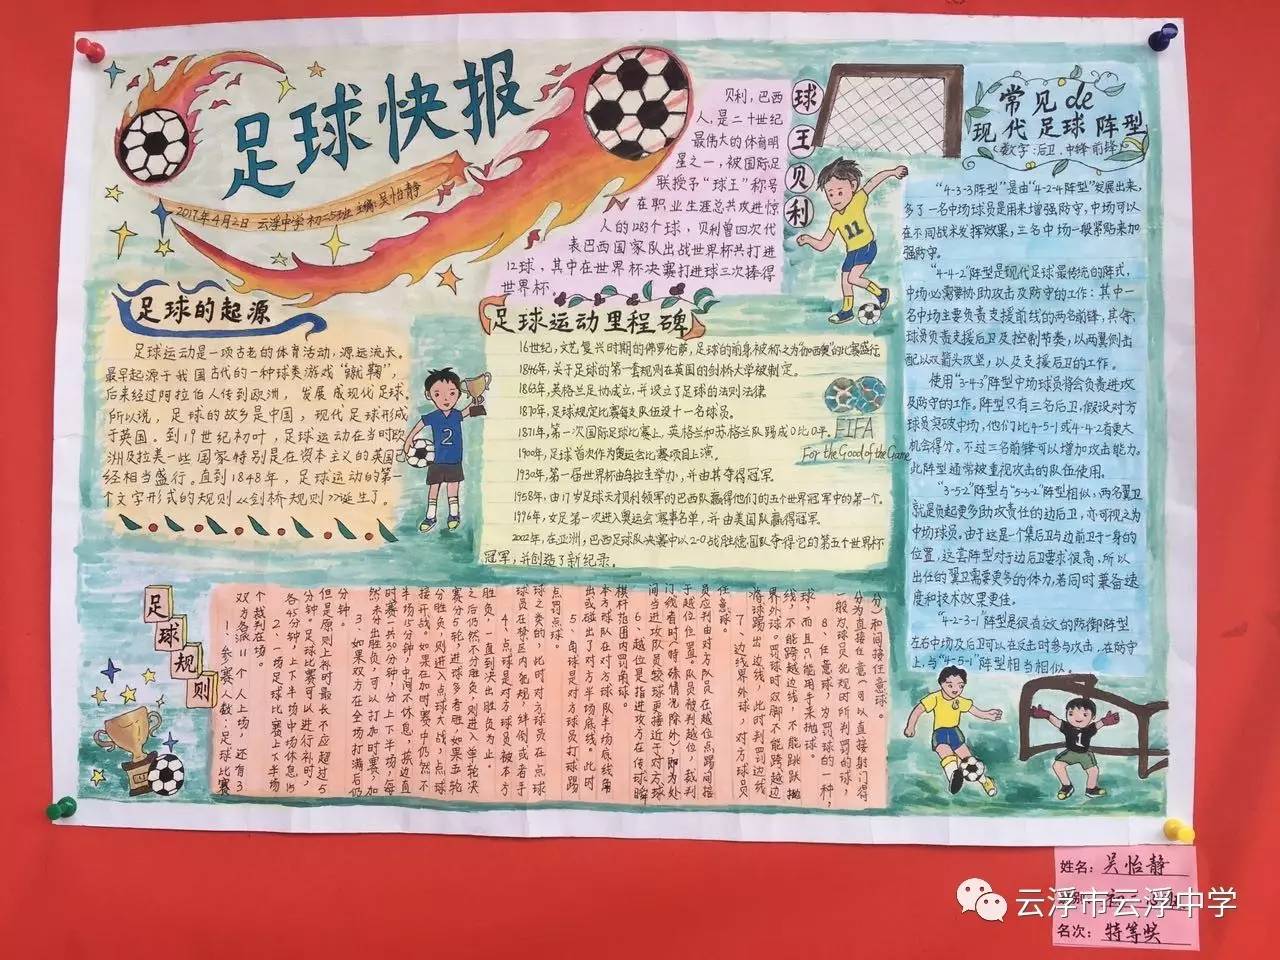 足球快报
2017年4月2日 云浮中学 初二5班 主编:吴怡静
球王贝利
贝利，巴西
人，是二十世纪
最伟大的体育明
星之一，被国际足
联授予“球王”称号
在职业生涯总共攻进惊
人的1283个球，贝利曾四次代
表巴西国家队出战世界杯共打进
12球，其中在世界杯决赛打进球三次捧得
世界杯。
常见de
现代足球阵型
(数字:后卫,中锋,前锋)
“4-3-3阵型”是由“4-2-4阵型”发展出来,
多了一名中场球员是用来增强防守,中场可以
在不同战术发挥效果,三名中场一般紧贴来加
强防守。
“4-4-2”阵型是现代足球最传统的阵式,
中场必需要协助攻击及防守的工作:其中一
名中场主要负责支援前线的两名前锋,其余
球员负责支援后卫及控制节奏,以两翼侧击
配以双箭头攻坚,以及支援后卫的工作。
使用“3-4-3”阵型中场球员将会负责进攻
及防守的工作。阵型只有三名后卫,假设对方
球员突破中场,他们比4-5-1或4-4-2有更大
机会得分。不过三名前锋可以增加攻击能力。
此阵型通常被重视攻击的队伍使用。
“3-5-2”阵型与“5-3-2”阵型相似,两名翼卫
就是负起更多助攻责任的边后卫,亦可视之为
中场球员。由于这是个集后卫与边前卫于一身的
位置,这套阵型对于边后卫要求很高,所以
出任的翼卫需要更多的体力,若同时兼备速
度和技术效果更佳。
“4-2-3-1”阵型是很有效的防御阵型
在右中场及后卫可以在反击时参与攻击,在防守
上,与“4-5-1”阵型相当相似。
足球的起源
足球运动是一项古老的体育活动,源远流长。
最早起源于我国古代的一种球类游戏“蹴鞠”,
后来经过阿拉伯人传到欧洲,发展成现代足球。
所以说,足球的故乡是中国,现代足球形成
于英国。到19世纪初叶,足球运动在当时欧
洲及拉美一些国家特别是在资本主义的英国
经相当盛行。直到1848年,足球运动的第一
个文字形式的规则《剑桥规则》诞生了。
足球运动里程碑
16世纪,文艺复兴时期的佛罗伦萨,足球的前身,被称之为“伽西奥”的比赛盛行
1846年,关于足球的第一套规则在英国的剑桥大学被制定。
1863年,英格兰足协成立,并设立了足球的法则法律。
1870年,足球规定比赛每支队伍设十一名球员。
1871年,第一次国际足球比赛上,英格兰和苏格兰队踢成0比0平。
1900年,足球首次作为奥运会比赛项目上演。
1930年,第一届世界杯由乌拉圭举办,并由其夺得冠军。
1958年,由17岁足球天才贝利领军的巴西队赢得他们的五个世界冠军中的第一个。
1996年,女足第一次进入奥运会赛事名单,并由美国队赢得冠军.
2002年,在亚洲,巴西足球队决赛中以2-0战胜德国队夺得它的第五个世界杯
冠军,并创造了新纪录。
FIFA
For the Good of the Game
11
2
1
足球规则
1、参赛人数:足球比赛
双方各派11个人上场,还有3
个裁判在场。
2、一场足球比赛上下半场
各45分钟,上下半场中场休息15
分钟。足球比赛可以进行补时,
但是原则上补时最长不应超过5
分钟。
3、如果双方在全场打满后仍
然未分出胜负,可以打加时赛,加
时赛一共30分钟,分上下半场,每
半场15分钟,中间不休息,换边直
接开战。如果在加时赛中仍然不
分胜负,则进入点球大战,点球
赛分5轮,进球多者胜,如果五轮
之后仍然不分胜负,则进入单轮决
胜负,一直到决出胜负为止。
4、点球是对方球员被本方
球员在禁区内犯规,绊倒或者手
球之类的,此时对方球员在点球
点罚点球。
5、角球是对方球员打球踢
出或碰出了对方半场底线。此时
本方球队在对方球队半场底线角
棋杆范围内罚角球。
6、越位是指进攻方在传球瞬
间当进攻队员较球更接近于对方球
门线看时(特殊情况除外),即为处
于越位位置。队员被判越位,裁判
员应判由对方队员在越位点踢间接
任意球。
7、边线界外球,对方球员
将球踢出边线,此时判罚边线
界外球。罚球时双脚不能跨越边
线,不能跨越边线,不能跳跃抛
球,而且只能用手来抛球
8、任意球,为罚球的一种,
一般为球员犯规时所判罚的球,
分为直接任意(可以直接射门得
分)和间接任意球。
姓名: 吴怡静
名次: 特等奖
云浮市云浮中学